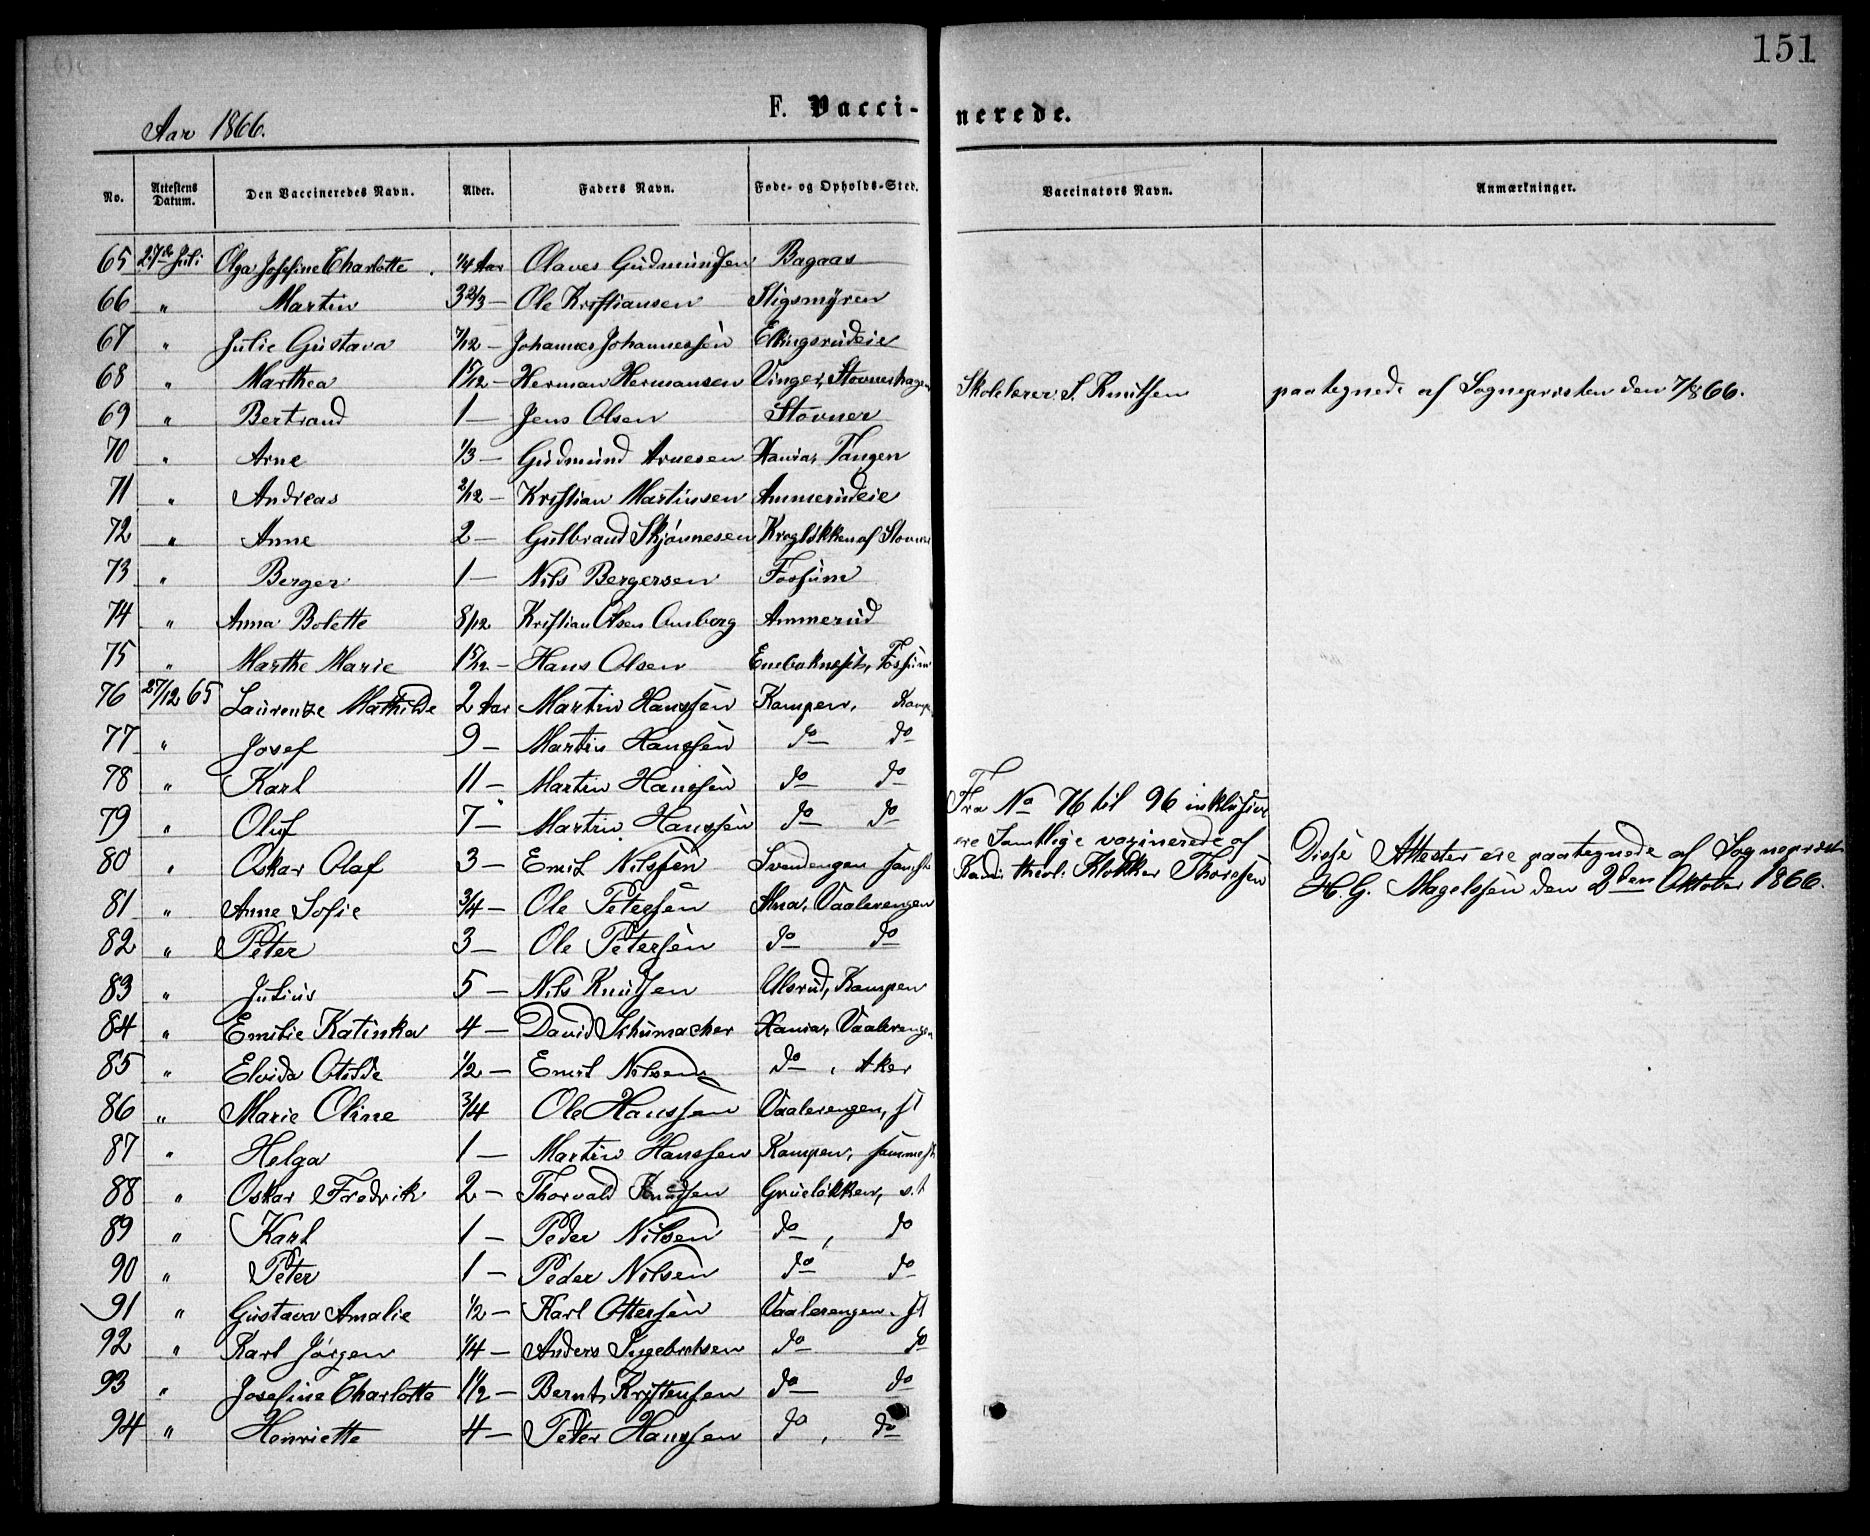 151
F. Vacci- nerede.
Aar 1866.
No. Attestens Datum. Den Vaccineredes Navn. Alder. Faders Navn. Føde- og Opholds-Sted. Vaccinators Navn. Anmærkninger.
65 27de Juli Olga Josefine Charlotte 1/4 Aar Olaves Gudmundsen Bagaas
66 " Martin 3 2/3 — Ole Kristiansen Stigsmyren
67 " Julie Gustava 7/12 — Johannes Johannessen Ellingsrudeie
68 " Marthea 1 5/12 — Herman Hermansen Vinger, Stovnerhagen Skolelærer S. Knutsen paategnede af Sognepresten den 7/8 66.
69 " Bertrand 1 — Jens Olsen Stovner
70 " Arne 1/3 — Gudmund Arnesen Xania, Tangen
71 " Andreas 2/12 — Kristian Martinsen Ammerudeie
72 " Anne 2 — Gulbrand Skjønnesen Krogløkken af Stovner
73 " Berger 1 — Nils Bergersen Fossum
74 " Anna Bolette 8/12 Kristian Olsen Ammerud
75 " Marthe Marie 1 5/12 — Hans Olsen Fossum
76 27/12 65 Laurenze Mathilde 2 Aar Martin Hanssen Kampen, Kamp.
77 " Josef 9 — Martin Hanssen do do
78 " Karl 11 — Martin Hanssen do do
79 " Oluf 7 — Martin Hanssen do do
Fra No 76 til 96 inklusive
80 " Oskar Olaf 3 — Emil Nilssen Svendengen samst
ere Samtlige vaxinerede af
Kand. theol. Klokker Thoresen
Disse Attester ere paategnede af Sogneprest
H. G. Magelssen den 2den Oktober 1866.
81 " Anne Sofie 3/4 — Ole Petersen Alna, Vaalerengen
82 " Peter 3 — Ole Petersen do do
83 " Julius 5 — Nils Knutsen Ulsrud, Kampen
84 " Emilie Katinka 4 — David Schumacher Xania, Vaalerengen
85 " Elvida Otilde 1/2 — Emil Nilsen do, Aker
86 " Marie Oline 3/4 Ole Hanssen Vaalerengen, st
87 " Helga 1 — Martin Hanssen Kampen, sammest
88 " Oskar Fredrik 2 — Thorvald Knutsen Grueløkken, s.t
89 " Karl 1 — Peder Nilsen do, do
90 " Peter 1 — Peder Nilsen do do
91 " Gustava Amalie 1/2 — Karl Ottersen Vaalerengen. st
92 " Karl Jørgen 1/4 — Anders Ingebretsen do do
93 " Josefine Charlotte 1 1/2 — Bernt Kristensen do do
94 " Henriette 4 — Peter Hanssen do, do